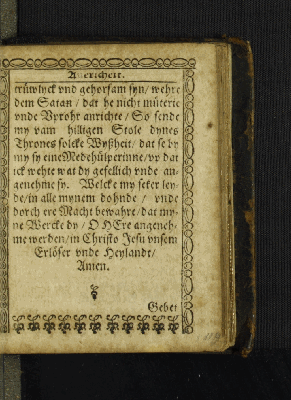 Avericheit.
trüwlyck vnd gehorsam syn/ wehre
dem Satan/ dat he nicht müterie
vnde Vprohr anrichte/ So sende
my vam hilligen Stole dynes
Thrones solcke Wyßheit/ dat se by
my sy eine Medehülperinne/ vp dat
ick wehte wat dy gefellich vnde an-
genehme sy. Welcke my seker ley-
de/ in alle mynem dohnde/ vnde
dorch ere Macht bewahre/ dat my-
ne Wercke dy/ O HEre angeneh-
me werden/ in Christo Jesu vnsem
Erlöser vnde Heylandt/
Amen.
Gebet